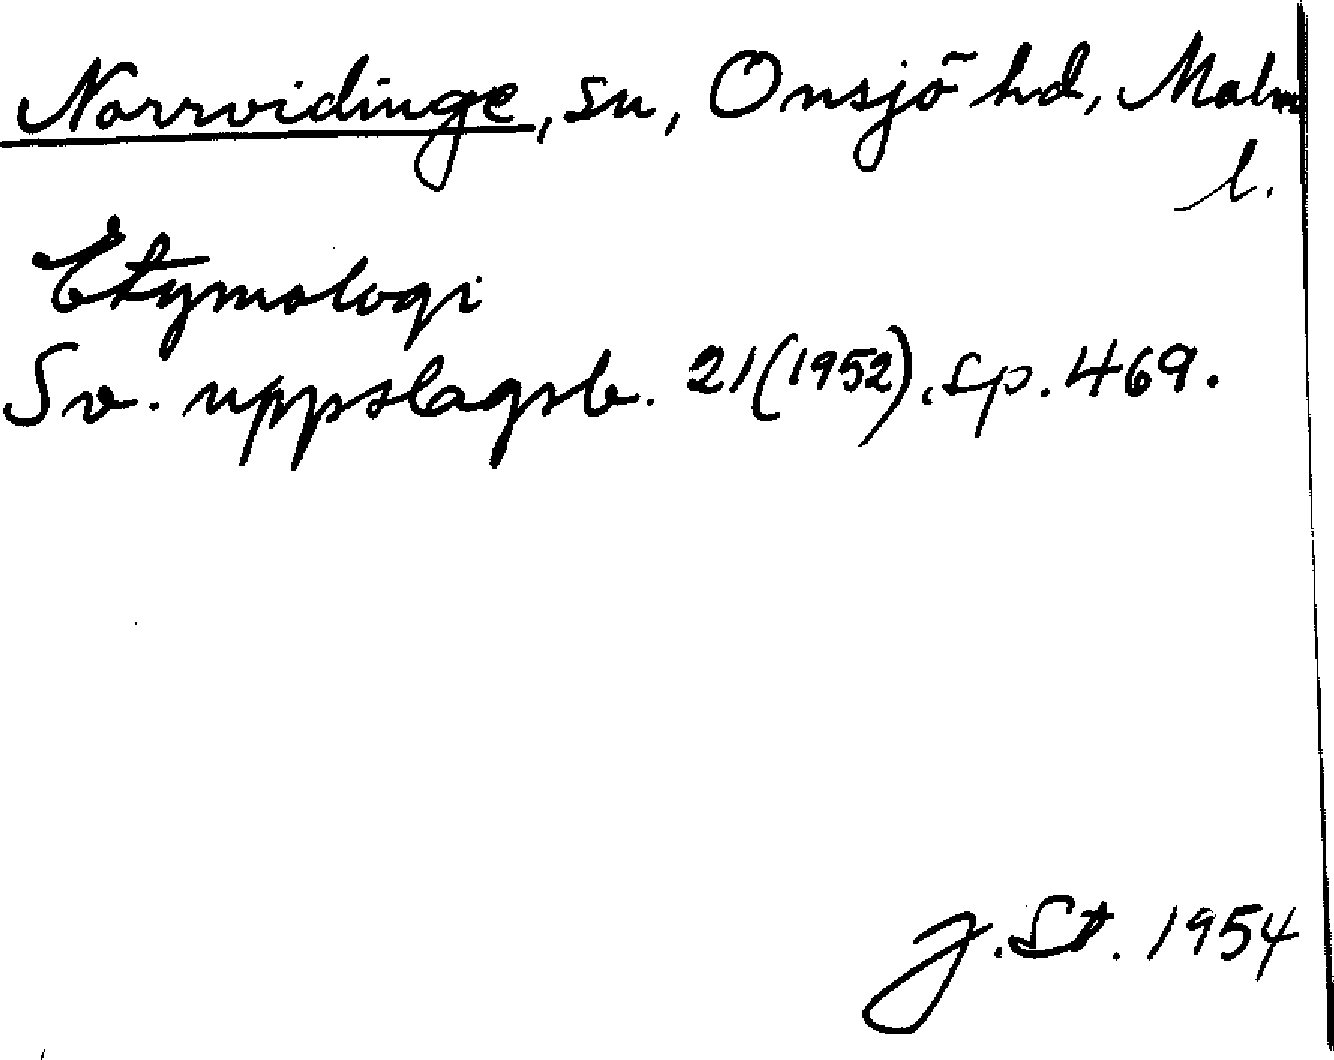 Norrvidinge, sn, Onsjö hd, Malm
l.
Etymologi
Sv. uppslagsb. 21(1952), sp. 469.
J. St. 1954